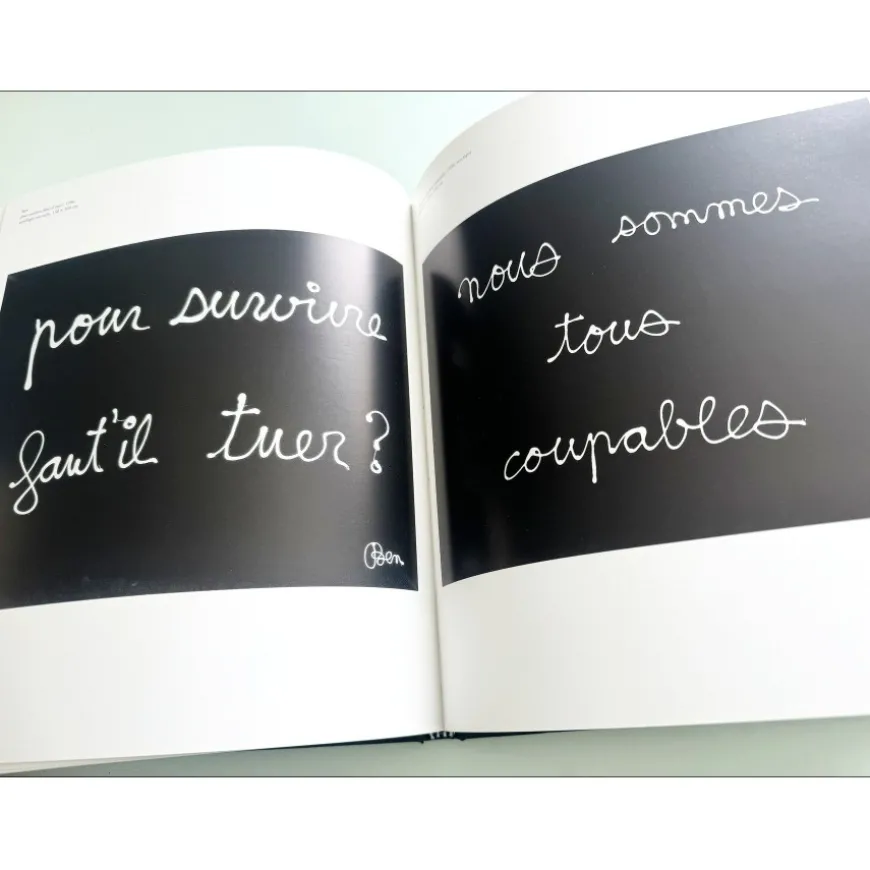 pour survivre
faut'il tuer?
Ben
nous sommes
tous
coupables